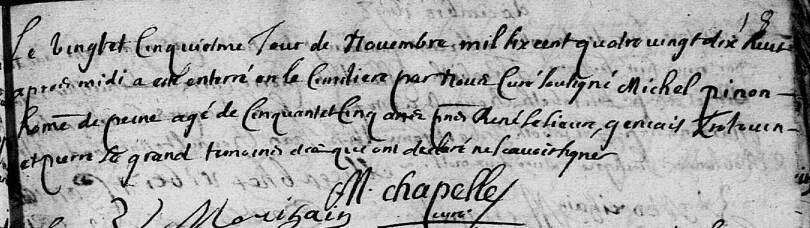 Le vingtet Cinquiesme Jour de Novembre mil six cent quatre vingt dix huit
apres midi a esté enterré en le Cimitiere par Nous Curé soussigné Michel pinon
home de peine agé de Cinquantet Cinq ans pnts René lesieur, gervais
et pierre Le grand temoins qui ont declaré ne scavoir signer
M. chapelle
curé